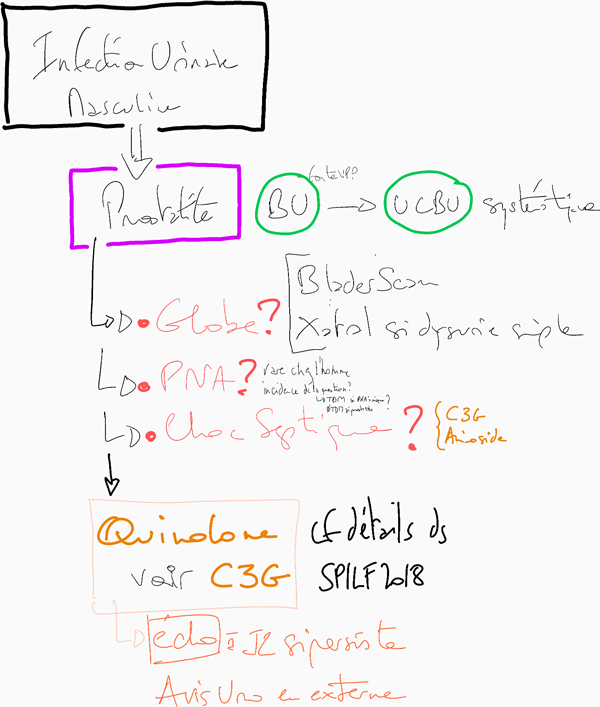 Infection Urinaire
Masculine
Prostatite
BU
forte VPP?
UCBU
systématique
Globe?
BladerScan
Xatral si dysurie simple
PNA?
rare chez l'homme
incidence de la question?
Choc Septique?
C3G
Aminoside
Quinolone
voir C3G
cf détails ds
SPILF 2018
écho à J2 si persiste
Avis Uro en externe